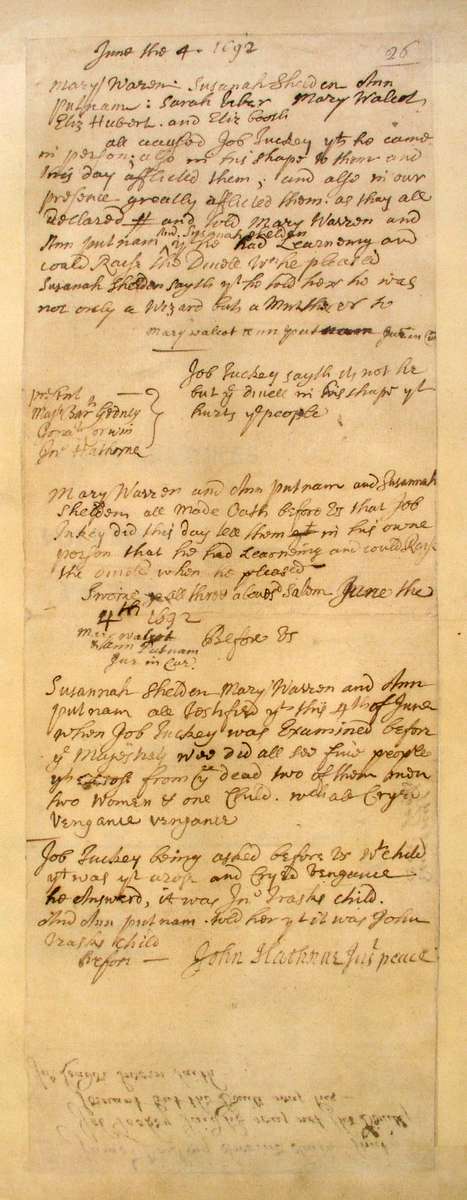 June the 4. 1692
26
Mary Warren: Susanah Shelden Ann
putnam: Sarah Biber Mary Walcot
Eliz Hubert. and Eliz booth
all accused Job Tuckey yt he came
in person; also in his shape to them and
this day afflicted them; and also in our
presence greatly afflicted them: as thay all
declared and told Mary Warren and
Ann putnam And Susanah shelden yt he had Learneing and
could Raise the Divele wn he pleased
Susanah Shelden sayth yt he told her he was
not only a Wizard but a Murtherer
Mary walcot & Ann putnam Jur in Cur
Job Tuckey sayth its not he
but ye divell in his shape yt
hurts ye people
present
Majr Bar: Gedney
Jonath Corwin
Jno Hathorne
Mary Warren and Ann putnam and Susannah
Shelden all Made Oath before Us that Job
Tukey did this day tell them in his owne
person that he had Learneing and could Raise
the divele when he pleased
Sworne all three above sd Salem June the
4th 1692
Mary walcot
& Ann Putnam
Jur in Cur.
Before Us
Susannah Shelden Mary Warren and Ann
putnam all testified yt this 4th of June
when Job Tuckey was Examined before
ye Majestrets wee did all see five people
yt arose from ye dead two of them men
two women & one Child. wch all Cryed
vengance vengance
Job Tuckey being asked before Us wt child
yt was yt arose and Cryed vengance
he Answerd, it was Jno Trasks child.
And Ann putnam told her yt it was John
Trasks Child
Before John Hathorne Just peace